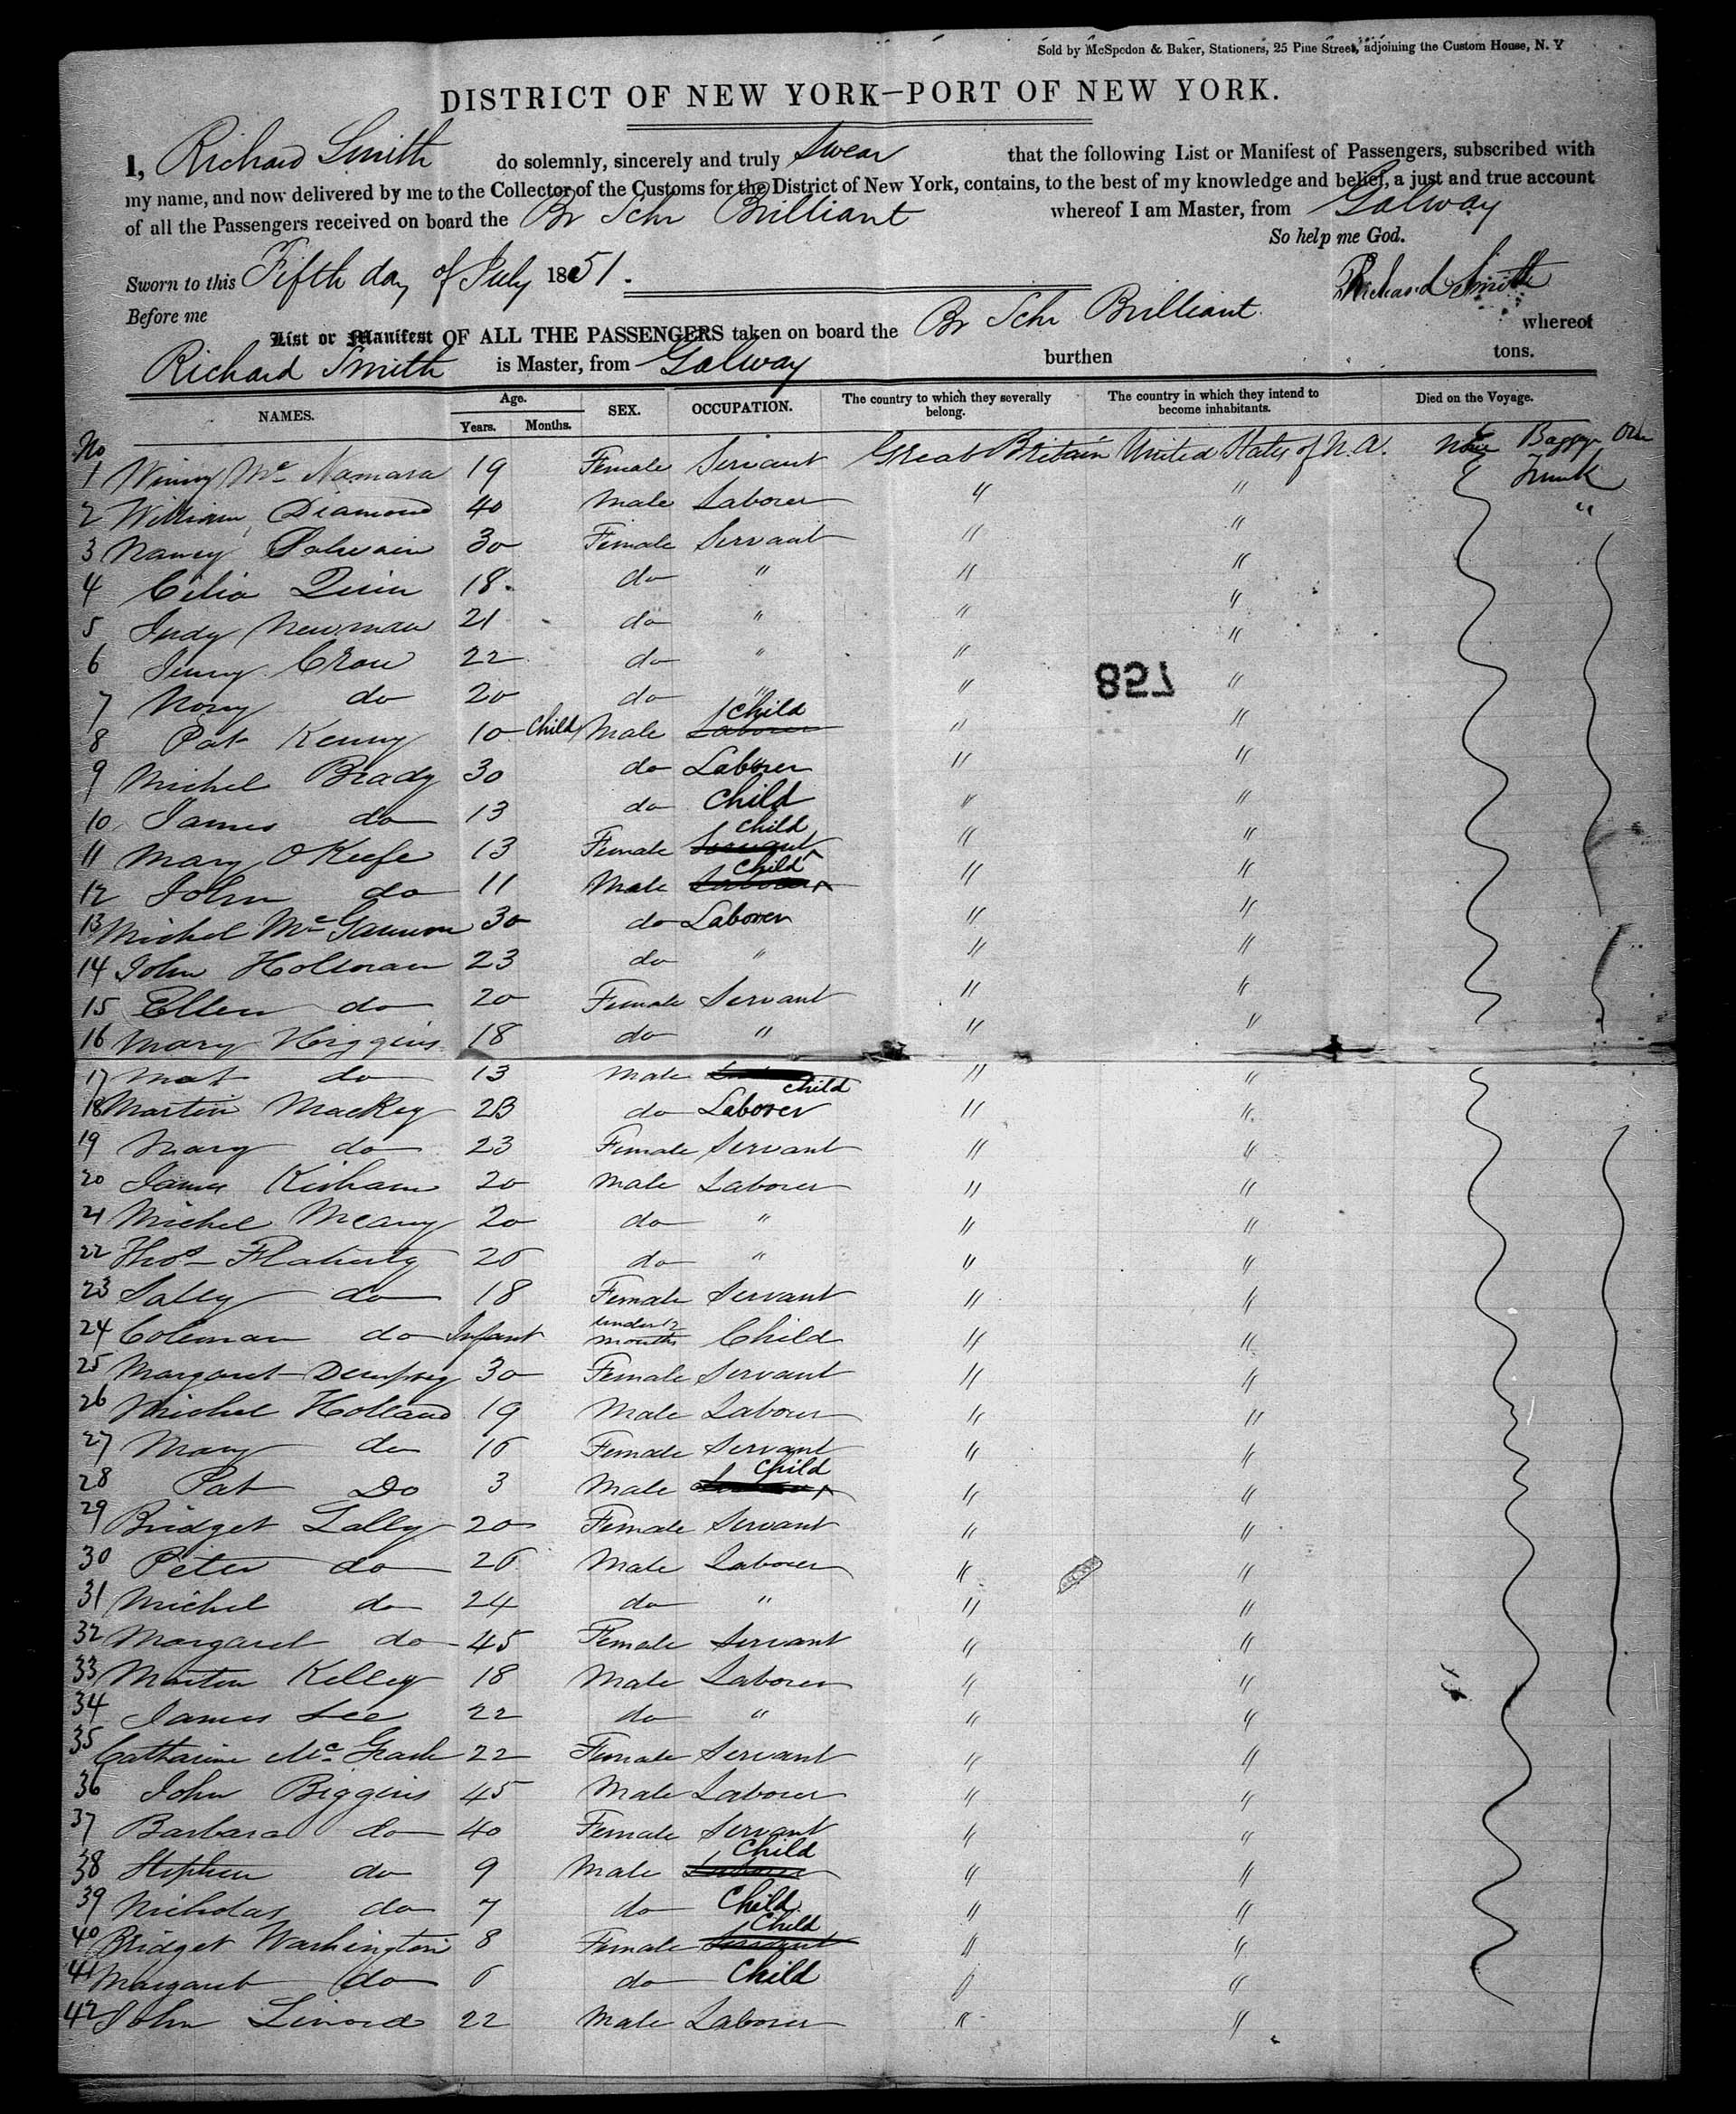 Sold by McSpedon & Baker, Stationers, 25 Pine Street, adjoining the Custom House, N. Y
DISTRICT OF NEW YORK—PORT OF NEW YORK.
I, Richard Smith do solemnly, sincerely and truly Swear that the following List or Manifest of Passengers, subscribed with
my name, and now delivered by me to the Collector of the Customs for the District of New York, contains, to the best of my knowledge and belief, a just and true account
of all the Passengers received on board the Br Schr Brilliant whereof I am Master, from Galway
So help me God.
Sworn to this Fifth day of July 1851. Richard Smith
Before me
List or Manifest OF ALL THE PASSENGERS taken on board the Br Schr Brilliant whereof
Richard Smith is Master, from Galway burthen tons.
NAMES. Age. Years. Months. SEX. OCCUPATION. The country to which they severally belong. The country in which they intend to become inhabitants. Died on the Voyage.
No
1 Winny Mc Namara 19 Female Servant Great Britain United States of N. A. None Baggage One Trunk
2 William Diamond 40 Male Laborer " " "
3 Nancy 30 Female Servant " "
4 Celia Quin 18 do " " "
5 Judy Newman 21 do " " "
6 Jenny Crow 22 do " " "
7 Nony do 20 do " " "
8 Pat Kenny 10 Child Male Laborer Child " "
9 Michel Brady 30 do Laborer " "
10 James do 13 do Child " "
11 Mary OKeefe 13 Female Servant Child " "
12 John do 11 Male Laborer Child " "
13 Michel Mc Gannon 30 do Laborer " "
14 John Holloran 23 do " " "
15 Ellen do 20 Female Servant " "
16 Mary Higgins 18 do " " "
17 Mat do 13 Male Child " "
18 Martin Mackey 23 do Laborer " "
19 Mary do 23 Female Servant " "
20 James Kirham 20 Male Laborer " "
21 Michel Meany 20 do " " "
22 Thos Flaherty 26 do " " "
23 Sally do 18 Female Servant " "
24 Coleman do Infant under 12 months Child " "
25 Margaret Dempsey 30 Female Servant " "
26 Michel Holland 19 Male Laborer " "
27 Mary do 16 Female Servant " "
28 Pat Do 3 Male Child " "
29 Bridget Lally 20 Female Servant " "
30 Peter do 26 Male Laborer " "
31 Michel do 24 do " " "
32 Margaret do 45 Female Servant " "
33 Martin Kelley 18 Male Laborer " "
34 James Lee 22 do " " "
35 Catharine Mc Grath 22 Female Servant " "
36 John Biggins 45 Male Laborer " "
37 Barbara do 40 Female Servant " "
38 Stephen do 9 Male Laborer Child " "
39 Nicholas do 7 do Child " "
40 Bridget Washington 8 Female Servant Child " "
41 Margaret do 6 do Child " "
42 John 22 Male Laborer " "
857